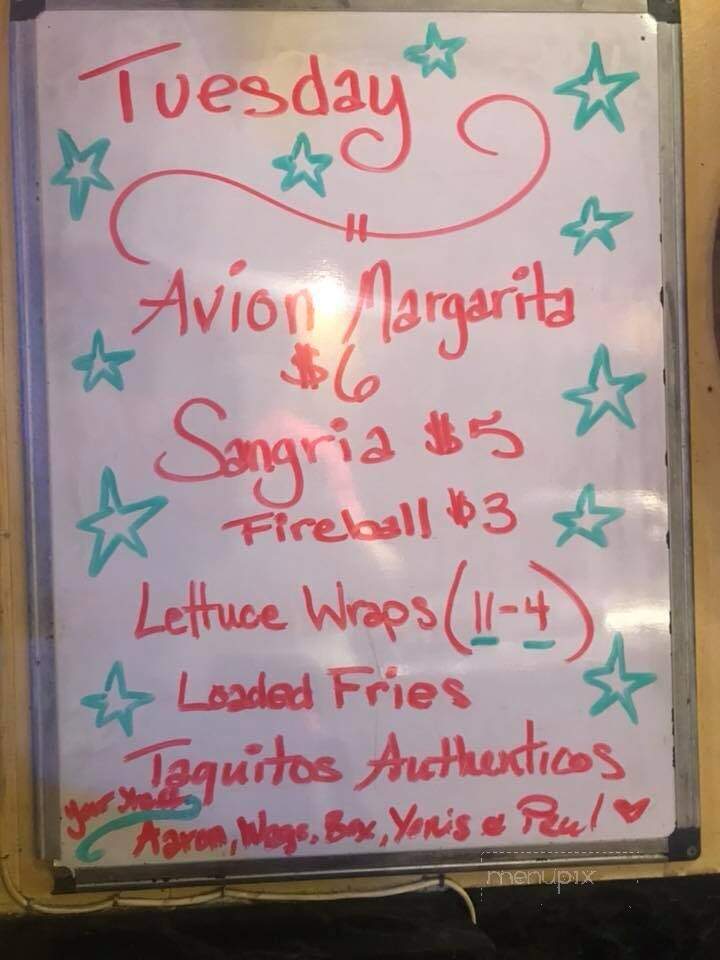 Tuesday
Avion Margarita
$6
Sangria $5
Fireball $3
Lettuce Wraps (11-4)
Loaded Fries
Taquitos Authenticos
your staff
Aaron, Wags, Box, Yanis & Paul
menupix